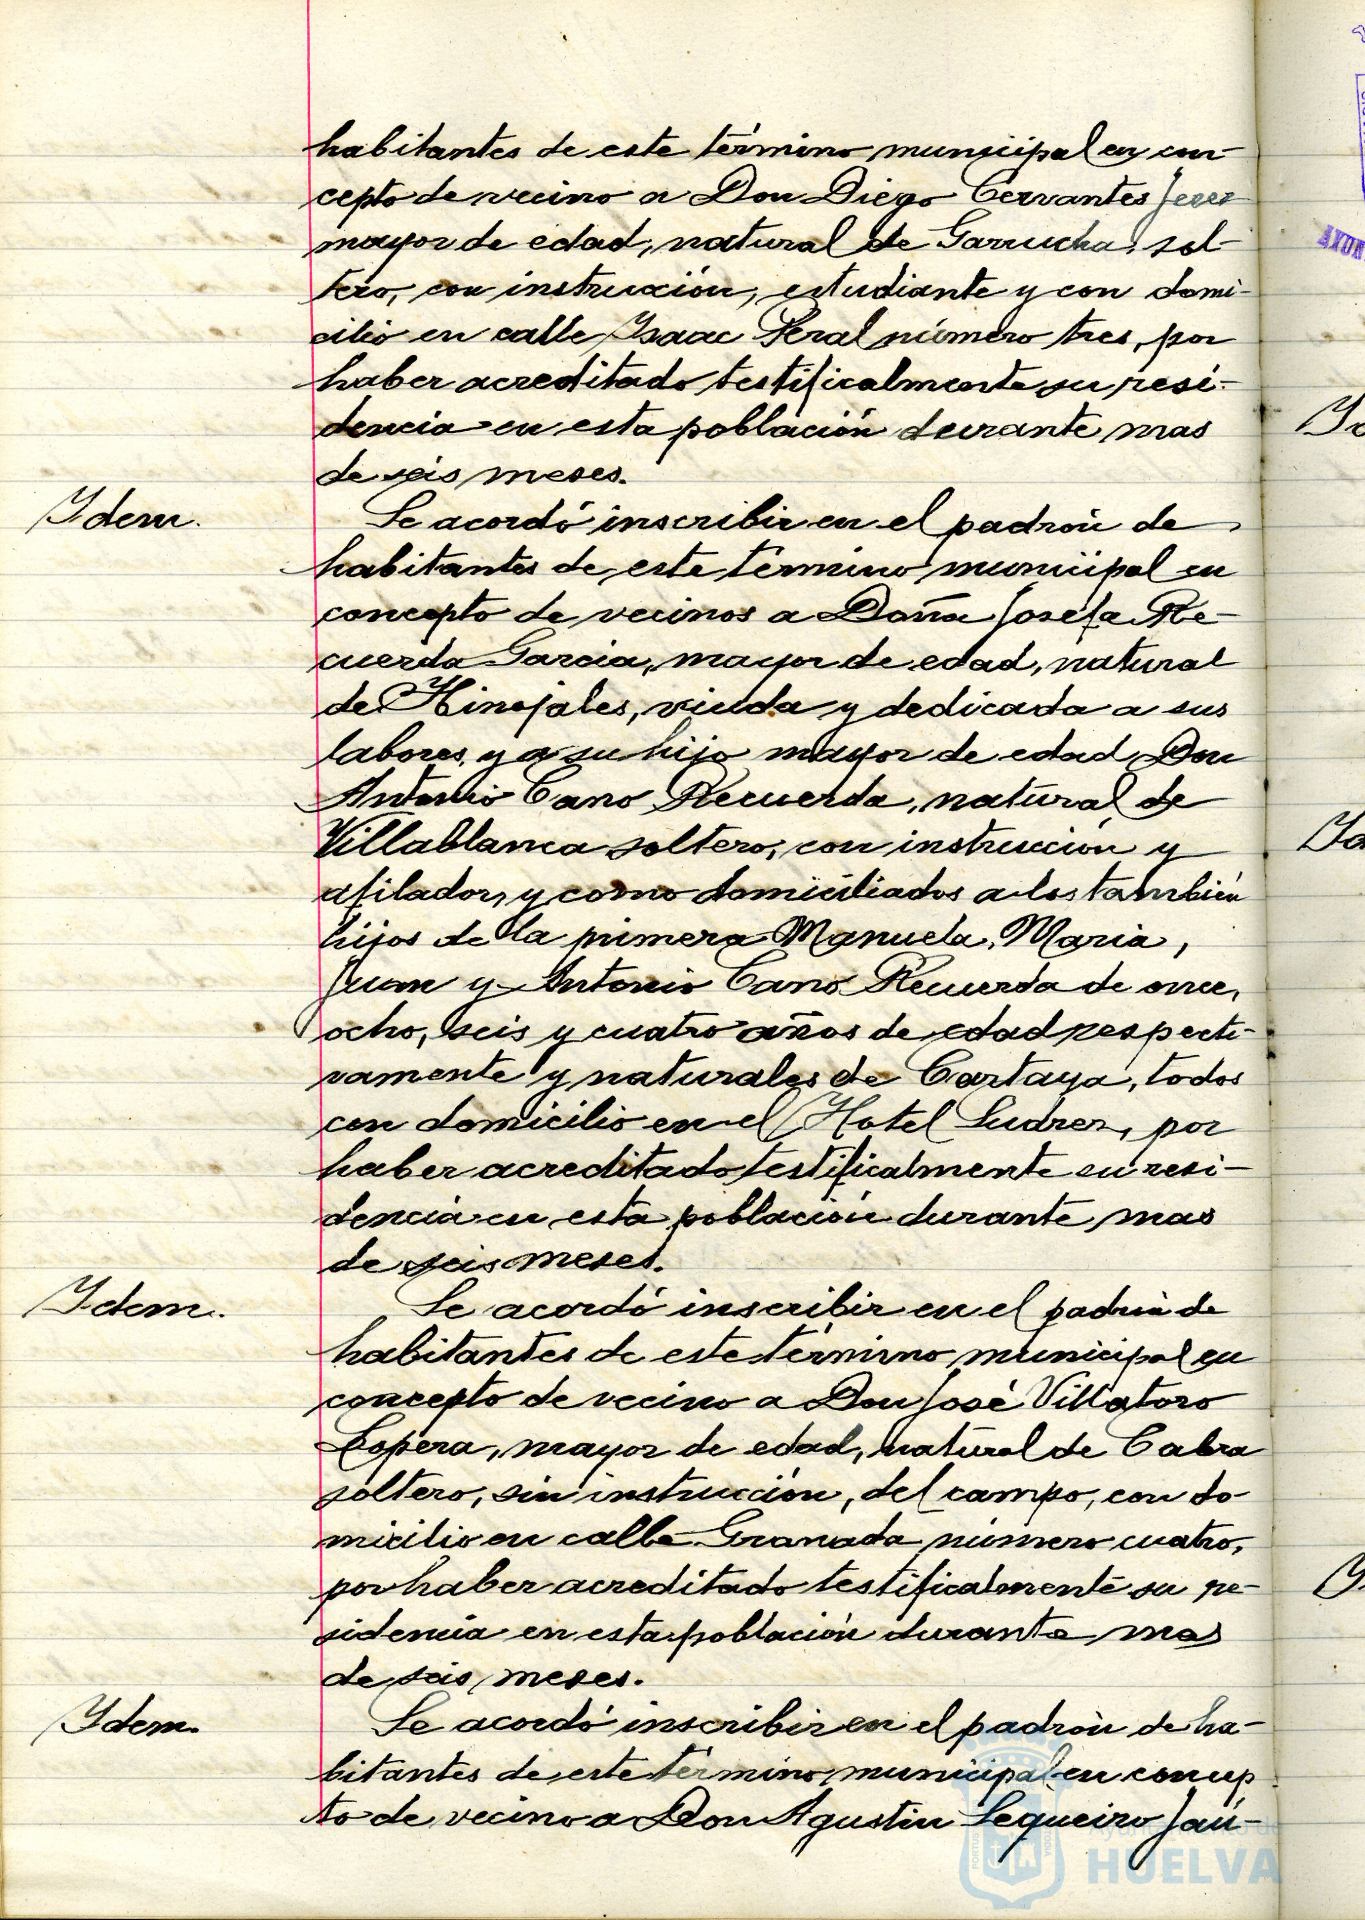 habitantes de este término municipal en con-
cepto de vecino a Don Diego Cervantes Jerez
mayor de edad, natural de Garrucha, sol-
tero, con instrucción, estudiante y con domi-
cilio en calle Isaac Peral número tres, por
haber acreditado testificalmente su resi-
dencia en esta población durante mas
de seis meses.
Idem. Se acordó inscribir en el padrón de
habitantes de este término municipal en
concepto de vecinos a Doña Josefa Re-
cuerda Garcia, mayor de edad, natural
de Hinojales, viuda y dedicada a sus
labores, y a su hijo mayor de edad Don
Antonio Cano Recuerda, natural de
Villablanca soltero, con instrucción y
afilador, y como domiciliados a los también
hijos de la primera Manuela, Maria,
Juan y Antonio Cano Recuerda de once,
ocho, seis y cuatro años de edad respecti-
vamente y naturales de Cartaya, todos
con domicilio en el Hotel por
haber acreditado testificalmente su resi-
dencia en esta población durante mas
de seis meses.
Idem. Se acordó inscribir en el padrón de
habitantes de este término municipal en
concepto de vecino a Don José Villatoro
Lopera, mayor de edad, natural de Cabra
soltero, sin instrucción, del campo, con do-
micilio en calle Granada número cuatro,
por haber acreditado testificalmente su re-
sidencia en esta población durante mas
de seis meses.
Idem. Se acordó inscribir en el padrón de ha-
bitantes de este término municipal en concep
to de vecino a Don Agustin Sequeiro Jaú-
Ayuntamiento de
HUELVA